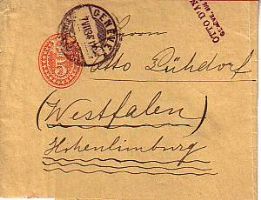 GENÈVE
OTTO DIAN
Herrn
Otto Pühdorf
(Westfalen)
Hohenlimburg